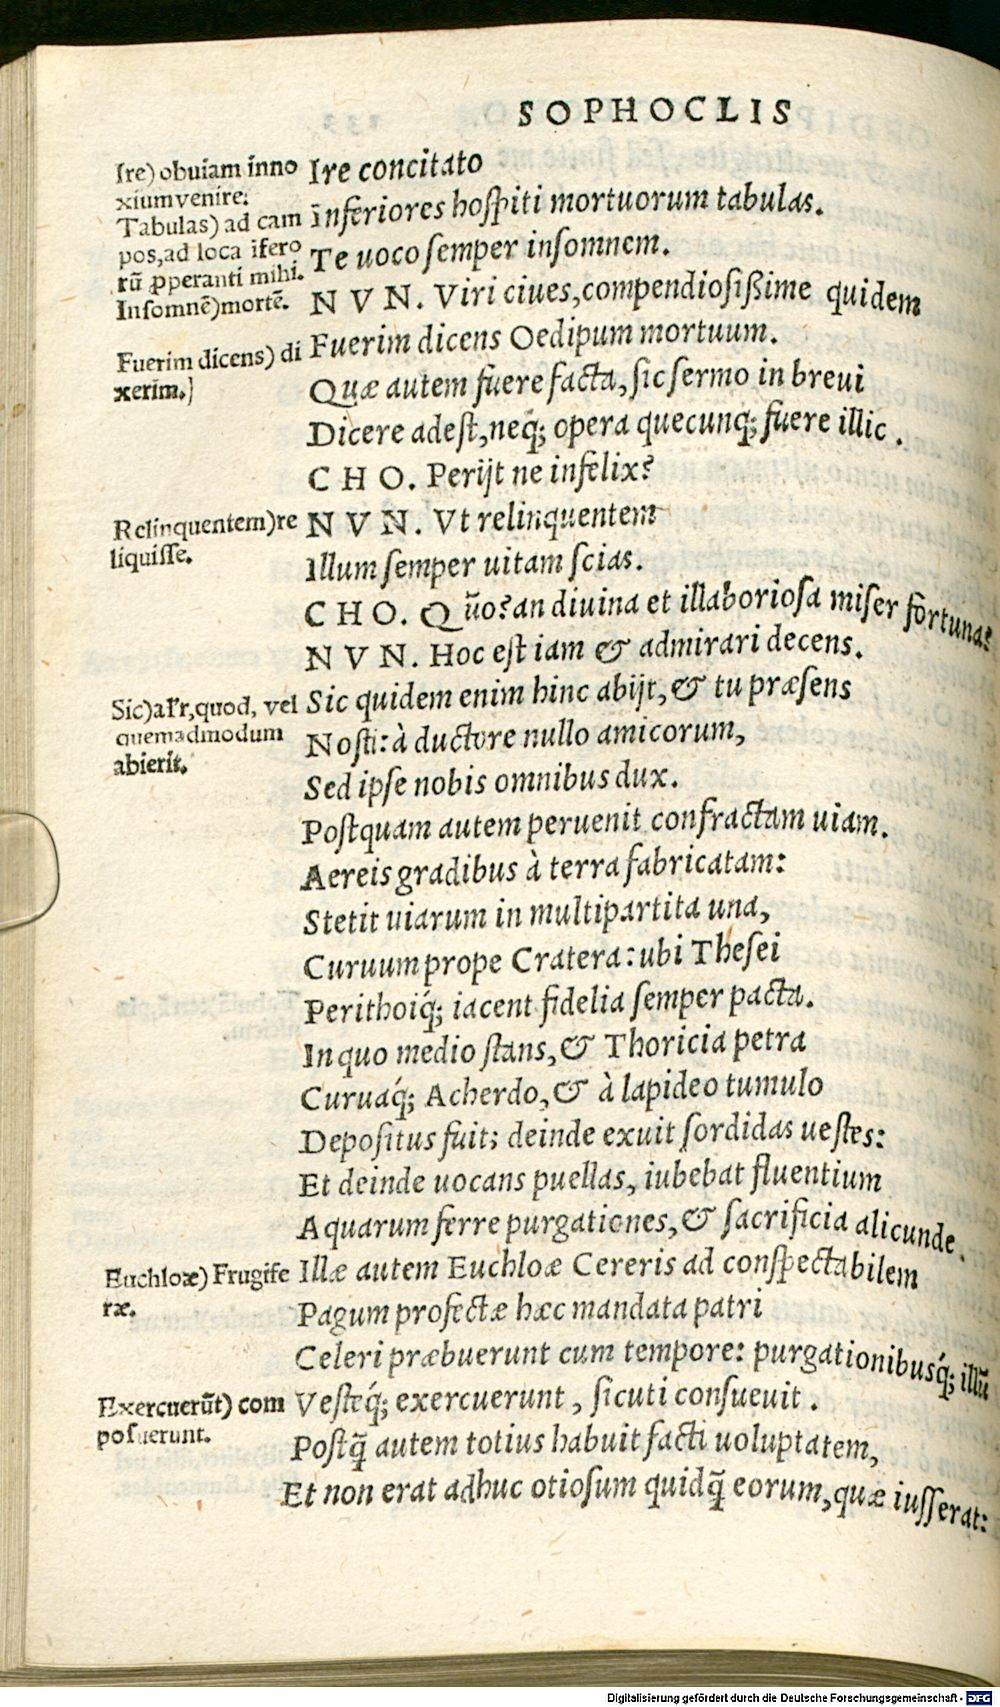 SOPHOCLIS
Ire) obuiam inno
xium venire.
Tabulas) ad cam
pos, ad loca ifero
rũ ꝓperanti mihi.
Insomnẽ) mortẽ.
Fuerim dicens) di
xerim.)
Relinquentem) re
liquisse.
Sic) al'r, quod, vel
quemadmodum
abierit.
Euchloæ) Frugife
ræ.
Exercuerũt) com
posuerunt.
Ire concitato
Inferiores hospiti mortuorum tabulas.
Te uoco semper insomnem.
N V N. Viri ciues, compendiosißime quidem
Fuerim dicens Oedipum mortuum.
Quæ autem fuere facta, sic sermo in breui
Dicere adest, neq; opera quecunq; fuere illic.
C H O. Perijt ne infelix?
N V N. Vt relinquentem
Illum semper uitam scias.
C H O. Quo? an diuina et illaboriosa miser fortuna?
N V N. Hoc est iam & admirari decens.
Sic quidem enim hinc abijt, & tu præsens
Nosti: à ductore nullo amicorum,
Sed ipse nobis omnibus dux.
Postquam autem peruenit confractam uiam.
Aereis gradibus à terra fabricatam:
Stetit uiarum in multipartita una,
Curuum prope Cratera: ubi Thesei
Perithoiq́; iacent fidelia semper pacta.
In quo medio stans, & Thoricia petra
Curuaq́; Acherdo, & à lapideo tumulo
Depositus fuit; deinde exuit sordidas uestes:
Et deinde uocans puellas, iubebat fluentium
Aquarum ferre purgationes, & sacrificia alicunde.
Illæ autem Euchloæ Cereris ad conspectabilem
Pagum profectæ hæc mandata patri
Celeri præbuerunt cum tempore: purgationibusq́; illũ
Vesteq́; exercuerunt, sicuti consueuit.
Postq̃ autem totius habuit facti uoluptatem,
Et non erat adhuc otiosum quidq̃ eorum, quæ iusserat:
Digitalisierung gefördert durch die Deutsche Forschungsgemeinschaft - DFG